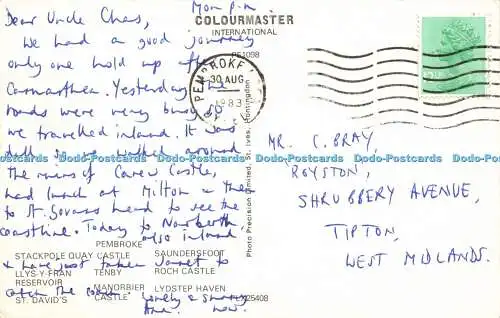 Mon p.m
Dear Uncle Chas,
We had a good journey
only one hold up after
Carmarthen. Yesterday the
roads were very busy so
we travelled inland. It was
dull so we walked around
the ruins of Carew Castle,
had lunch at Milton & then
to St. Govans head to see the
coastline. Today to Narberth,
also inland
& have just taken Janet to
catch the coach. Lovely & sunny
here now.
COLOURMASTER
INTERNATIONAL
PS1098
PEMBROKE
30 AUG
1983
Photo Precision Limited, St. Ives, Huntingdon
MR. C. BRAY,
ROYSTON,
SHRUBBERY AVENUE,
TIPTON,
WEST MIDLANDS.
PEMBROKE
STACKPOLE QUAY CASTLE SAUNDERSFOOT
LLYS-Y-FRAN TENBY ROCH CASTLE
RESERVOIR MANORBIER LYDSTEP HAVEN
ST. DAVID'S CASTLE
LX25408
Dodo-Postcards Dodo-Postcards Dodo-Postcards Dodo-Postcards Dodo-Postcards Dodo-Postcards